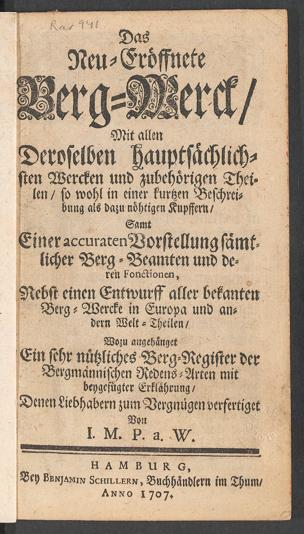 Rar 941
Das
Neu-Eröffnete
Berg-Werck/
Mit allen
Deroselben hauptsächlich-
sten Wercken und zubehörigen Thei-
len/ so wohl in einer kurtzen Beschrei-
bung als dazu nöhtigen Kupffern/
Samt
Einer accuraten Vorstellung sämt-
licher Berg-Beamten und de-
ren Fonctionen,
Nebst einen Entwurff aller bekanten
Berg-Wercke in Europa und an-
dern Welt-Theilen/
Wozu angehänget
Ein sehr nützliches Berg-Register der
Bergmännischen Redens-Arten mit
beygefügter Erklährung/
Denen Liebhabern zum Vergnügen verfertiget
Von
I. M. P. a. W.
HAMBURG,
Bey BENJAMIN SCHILLERN, Buchhändlern im Thum/
ANNO 1707.